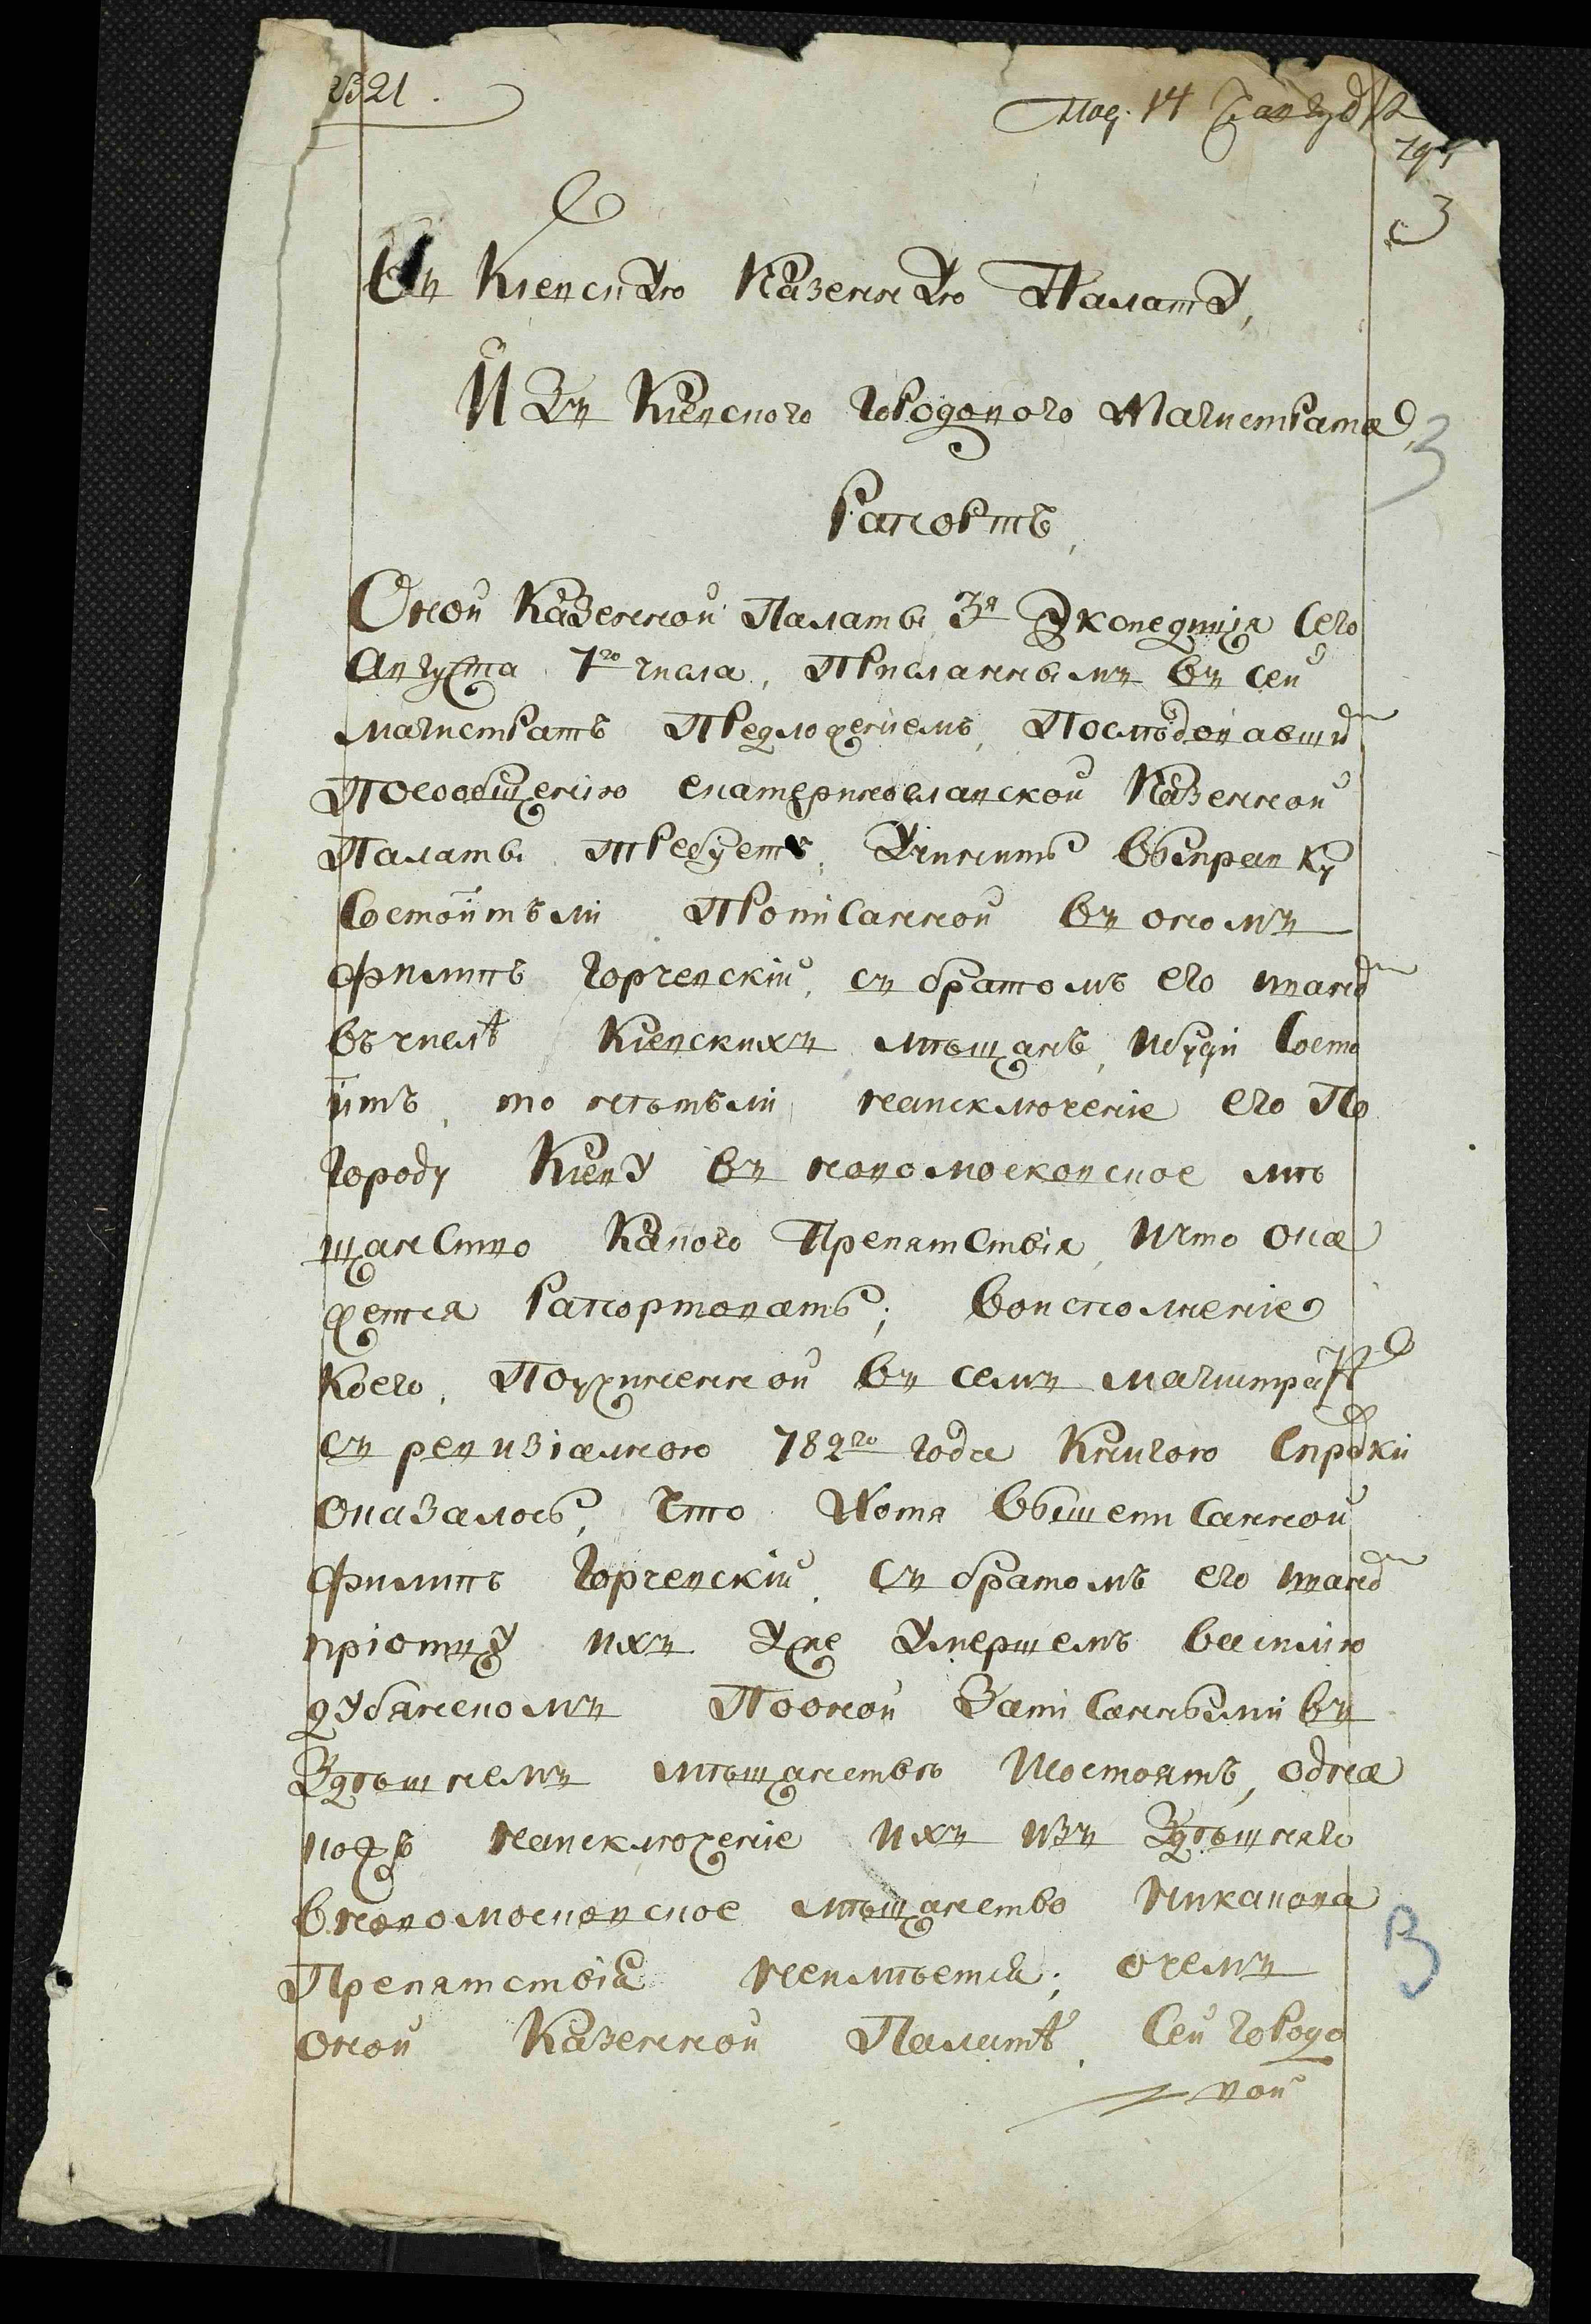 2321.
14
3
Въ Кіевскую Казенную Палату,
Изъ Кіевского городового Магистрата
3
Рапортъ,
Оной Казенной Палаты 3я Экспедиція сего
августа 7го числа, присланнымъ въ сей
магистратъ предложеніемъ, последовавши
посообщенію екатеринославской Казенной
Палаты требуетъ, учинить выправку
состоитъ ли прописанной въ ономъ
филипъ горчевскій, съ братомъ его иваном
въ числѣ Кіевскихъ мѣщанъ, ибуди состо
итъ, то нѣтъ ли наисключеніе его по
городу Кіеву въ новомосковское мѣ
щанство какого препятствія, ичто ока
жется рапортовать; воисполненіе
коего, поучиненной въ семъ магистратѣ
съ ревизіалною 782го года книгою справки
оказалось, что хотя вышеписанной
филипъ горчевскій, съ братомъ его иваном
приотцу ихъ уже умершемъ василию
дубянскомъ пооной записанными въ
здѣшнемъ мѣщанствѣ исостоятъ, одна
кожъ наисключеніе ихъ изъ здѣшняго
вновомосковское мѣщанство никакова
препятствія неимѣется; очемъ
оной Казенной Палатѣ, сей городо
вой
3